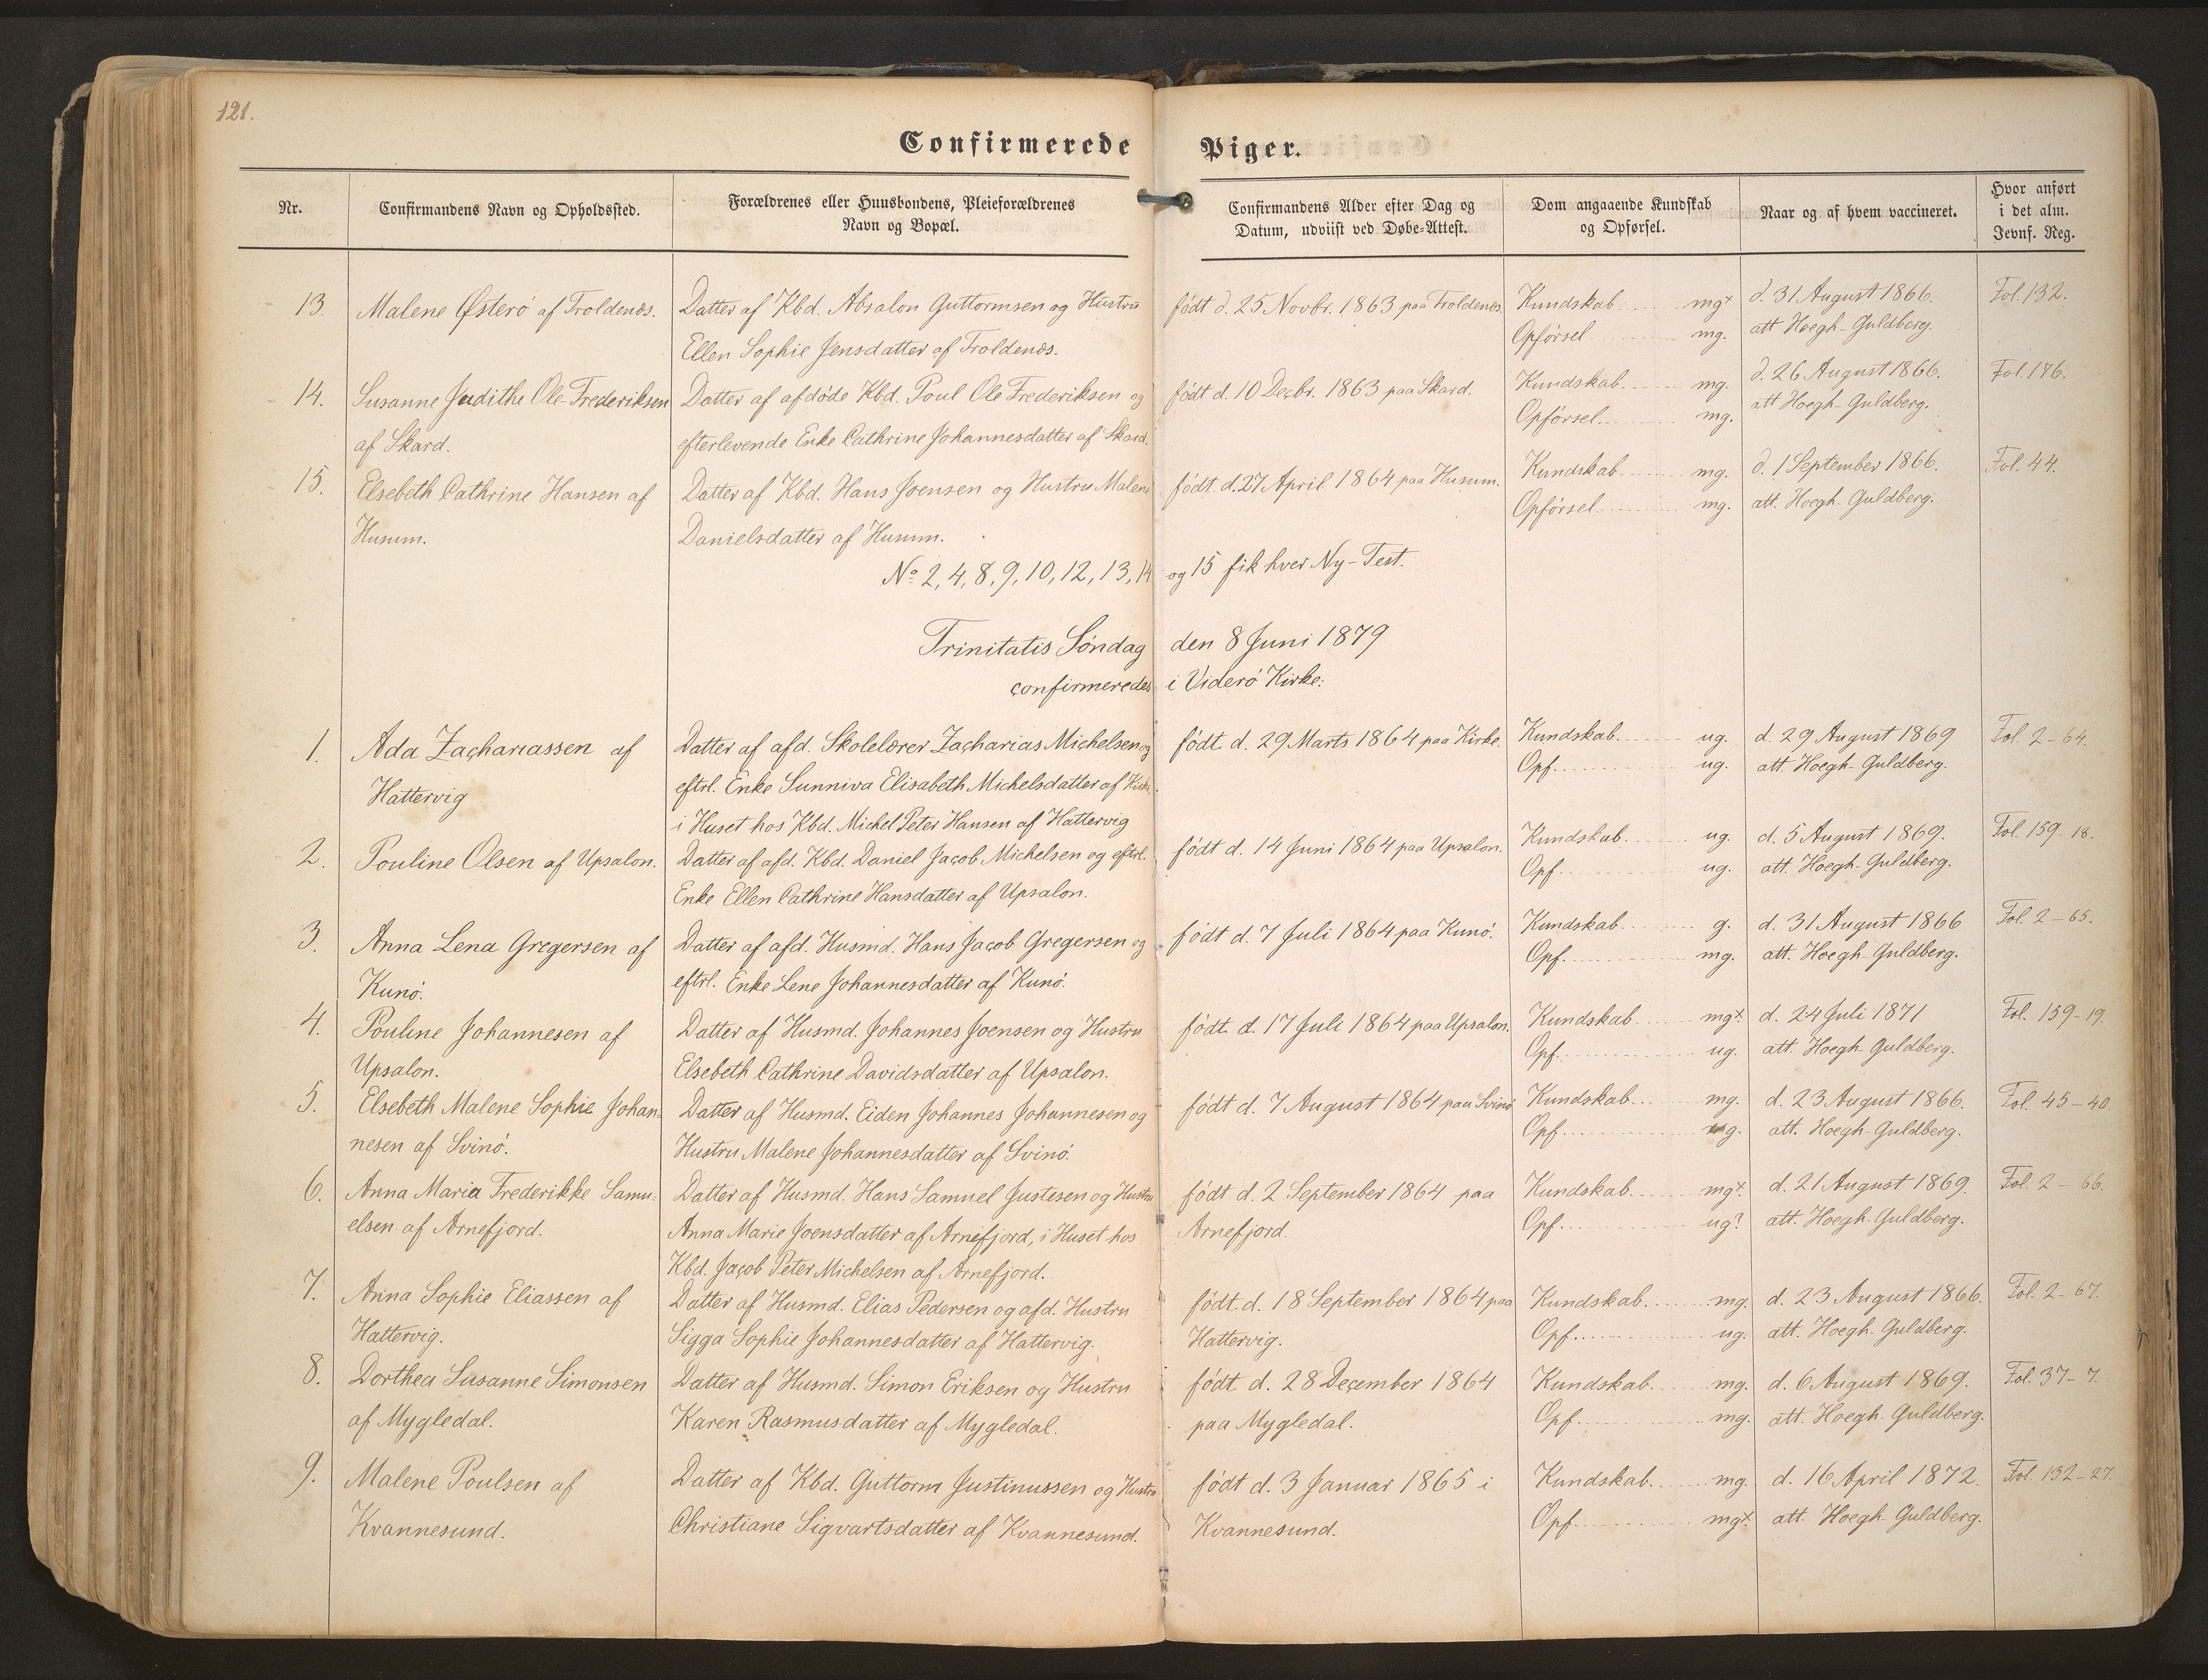 121.
Confirmerede Piger.
Nr.
Confirmandens Navn og Opholdssted.
Forældrenes eller Huusbondens, Pleieforældrenes
Navn og Bopæl.
Confirmandens Alder efter Dag og
Datum, udviist ved Døbe-Attest.
Dom angaaende Kundskab
og Opførsel.
Naar og af hvem vaccineret.
Hvor anført
i det alm.
Jevnf. Reg.
13.
Malene Østerö af Troldenæs.
Datter af Kbd. Absalon Guttormsen og Hustru
Ellen Sophie Jensdatter af Troldenæs.
födt d. 25 Novbr. 1863 paa Troldenæs.
Kundskab mg+
Opförsel mg.
d. 31 August 1866.
att Hoegh-Guldberg.
Fol. 132.
14.
Susanne Judithe Ole-Frederiksen
af Skard.
Datter af afdöde Kbd. Poul Ole Frederiksen og
efterlevende Enke Cathrine Johannesdatter af Skard.
födt d. 10 Decbr. 1863 paa Skard.
Kundskab mg.
Opförsel mg.
d. 26 August 1866.
att Hoegh-Guldberg.
Fol. 176.
15.
Elsebeth Cathrine Hansen af
Husum.
Datter af Kbd. Hans Joensen og Hustru Malene
Danielsdatter af Husum.
födt d. 27 April 1864 paa Husum.
Kundskab mg.
Opförsel mg.
d. 1 September 1866.
att. Hoegh-Guldberg.
Fol. 44.
No 2, 4, 8, 9, 10, 12, 13, 14 og 15 fik hver Ny-Test.
Trinitatis Söndag den 8 Juni 1879
confirmeredes i Viderö Kirke:
1.
Ada Zachariassen af
Hattervig
Datter af afd. Skolelærer Zacharias Michelsen og
eftrl. Enke Sunniva Elisabeth Michelsdatter af Kirke,
i Huset hos Kbd. Michel Peter Hansen af Hattervig
födt d. 29 Marts 1864 paa Kirke.
Kundskab ug.
Opf. ug.
d. 29 August 1869
att. Hoegh-Guldberg.
Fol. 2-64.
2.
Pouline Olsen af Upsalon.
Datter af afd. Kbd. Daniel Jacob Michelsen og eftrl.
Enke Ellen Cathrine Hansdatter af Upsalon.
födt d. 14 Juni 1864 paa Upsalon.
Kundskab ug.
Opf. ug.
d. 5 August 1869.
att. Hoegh-Guldberg.
Fol. 159-18.
3.
Anna Lena Gregersen af
Kunö.
Datter af afd. Husmd. Hans Jacob Gregersen og
eftrl. Enke Lene Johannesdatter af Kunö.
födt d. 7 Juli 1864 paa Kunö.
Kundskab g.
Opf. mg.
d. 31 August 1866
att. Hoegh-Guldberg.
Fol. 2-65.
4.
Pouline Johannesen af
Upsalon.
Datter af Husmd. Johannes Joensen og Hustru
Elsebeth Cathrine Davidsdatter af Upsalon.
födt d. 17 Juli 1864 paa Upsalon.
Kundskab mg+.
Opf. ug.
d. 24 Juli 1871
att. Hoegh Guldberg.
Fol. 159-19.
5.
Elsebeth Malene Sophie Johan-
nesen af Svinö.
Datter af Husmd. Eiden Johannes Johannesen og
Hustru Malene Johannesdatter af Svinö.
födt d. 7 August 1864 paa Svinö
Kundskab mg.
Opf. mg.
d. 23 August 1866.
att. Hoegh-Guldberg.
Fol. 45-40.
6.
Anna Maria Frederikke Samu-
elsen af Arnefjord.
Datter af Husmd. Hans Samuel Justesen og Hustru
Anna Marie Joensdatter af Arnefjord, i Huset hos
Kbd. Jacob Peter Michelsen af Arnefjord.
födt d. 2 September 1864 paa
Arnefjord.
Kundskab mg+.
Opf. ug?
d. 21 August 1869.
att. Hoegh-Guldberg.
Fol. 2-66.
7.
Anna Sophie Eliassen af
Hattervig.
Datter af Husmd. Elias Pedersen og afd. Hustru
Sigga Sophie Johannesdatter af Hattervig.
födt d. 18 September 1864 paa
Hattervig.
Kundskab mg.
Opf. ug.
d. 23 August 1866.
att. Hoegh-Guldberg.
Fol. 2-67.
8.
Dorthea Susanne Simonsen
af Mygledal.
Datter af Husmd. Simon Eriksen og Hustru
Karen Rasmusdatter af Mygledal.
födt d. 28 December 1864
paa Mygledal.
Kundskab mg.
Opf. mg.
d. 6 August 1869.
att. Hoegh-Guldberg.
Fol. 37-7.
9.
Malene Poulsen af
Kvannesund.
Datter af Kbd. Guttorm Justinussen og Hustru
Christiane Sigvartsdatter af Kvannesund.
födt d. 3 Januar 1865 i
Kvannesund.
Kundskab mg.
Opf. mg+.
d. 16 April 1872.
att. Hoegh-Guldberg.
Fol. 132-27.